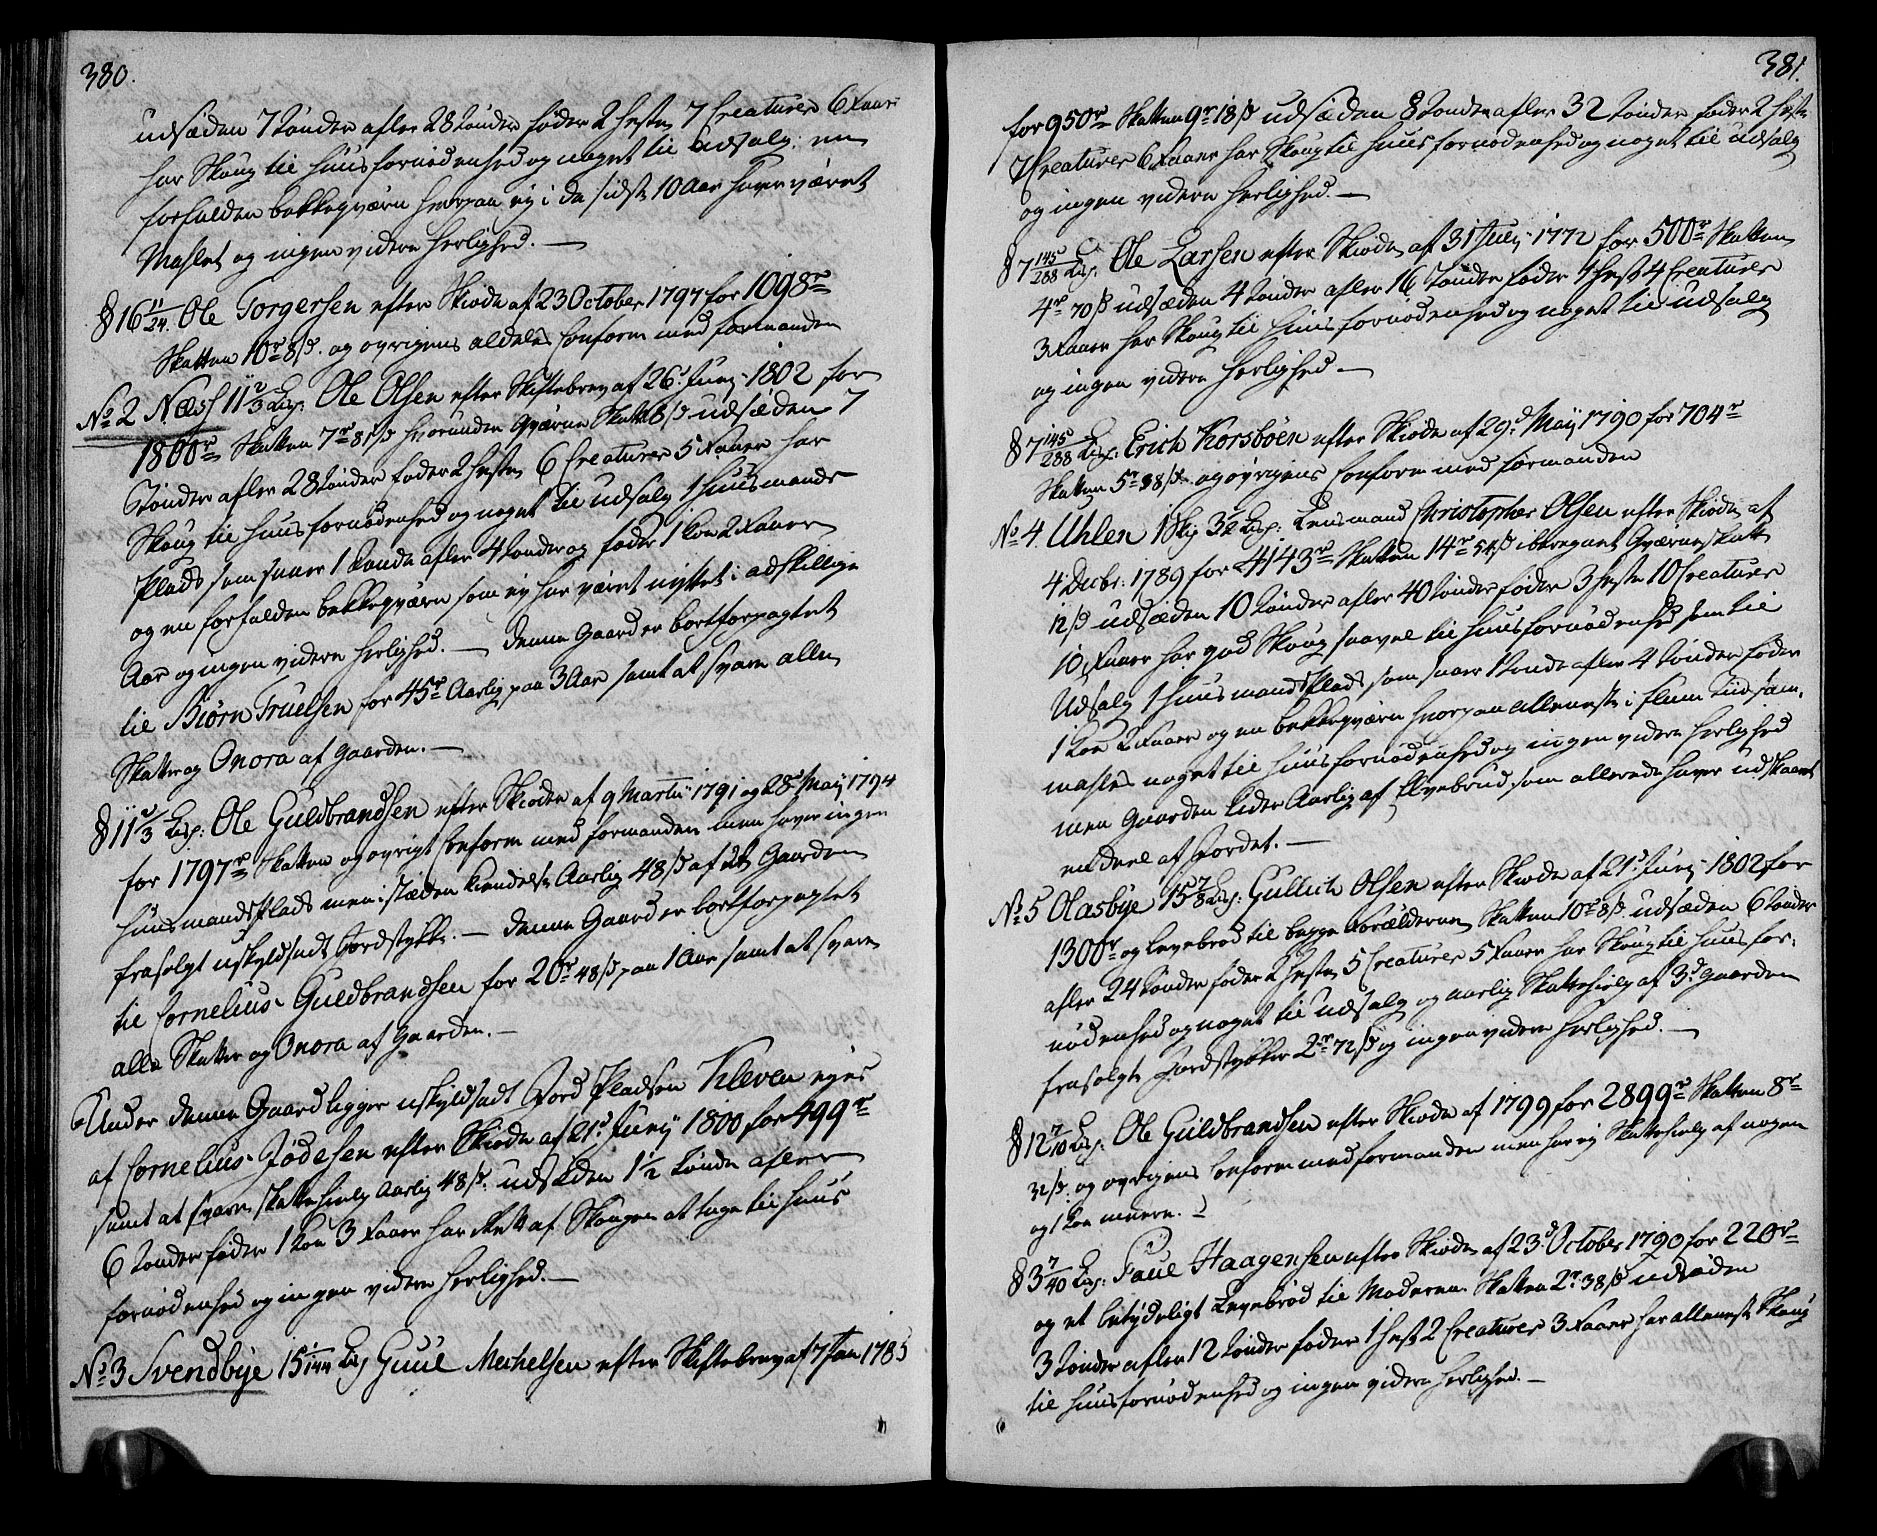 380.
udsæden 7 tønder afler 28 tønder føder 2 heste 7 Creature 6 Faar
har Skoug til huusfornødenhed og noget til udsalg: en
forfalden bekkeqværn hvorpaa ej i de sidste 10 Aar haver været
Mahlet og ingen videre herlighed. —
§ 16 11/24. Ole Torgersen efter Skiøde af 23 October 1797 for 1098 r
Skatten 10 r 8 s. og øvrigens aldeles Conform med formanden
No 2 Næss 11 2/3 Lisp: Ole Olsen efter Skiftebrev af 26 Junj 1802 for
1800 r Skatten 7 r 81 s hvorunder Qværne Skatt 8 s udsæden 7
Tønder afler 28 tønder føder 2 heste 6 Creature 5 Faar har
Skoug til huusfornødenhed og noget til udsalg 1 huusmands
Plads som saaer 1 tønde afler 4 tønder og føder 1 Koe 2 Faar
og en forfalden bekkeqværn som ej har været nyttet i adskillige
Aar og ingen videre herlighed. — denne Gaard er bortforpagtet
til Biørn Truelsen for 45 r Aarlig paa 3 Aar samt at svare alle
Skatter og Onera af gaarden. —
§ 11 2/3 Lisp: Ole Guldbrandsen efter Skiøder af 9 Martij 1791 og 28 Maij 1794
for 1797 r Skatten og øvrigt Conform med formanden men haver ingen
huusmands Plads men i stæden Kiendelse Aarlig 48 s af et Gaarden
frasolgt uskyldsadt Jordstykke. — denne Gaard er bortforpagtet
til Cornelius Guldbrandsen for 20 r 48 s paa 1 Aar samt at svare
alle Skatter og Onera af Gaarden. —
Under denne Gaard ligger uskyldsadt Jord Pladsen Kleven ejes
af Cornelius Jødesen efter Skiøde af 21 Junij 1800 for 499 r
samt at svare skattehielp Aarlig 48 s. udsæden 1 1/2 tønde afler
6 tønder føder 1 Koe 3 Faar har Rett af Skougen at tage til huus
fornødenhed og ingen videre herlighed. —
No 3 Svendbye 15 1/144 Lis Guul Mechelsen efter Skiftebrev af 7 Jan 1785
381.
for 950 r Skatten 9 r 18 s udsæden 8 tønder afler 32 tønder føder 2 heste
7 Creature 6 Faar har Skoug til huusfornødenhed og noget til udsalg
og ingen videre herlighed. —
§ 7 145/288 Lis: Ole Larsen efter Skiøde af 31 Julj 1772 for 500 r Skatten
4 r 70 s udsæden 4 tønder afler 16 tønder føder 1 hest 4 Creature
3 Faar har Skoug til huusfornødenhed og noget til udsalg
og ingen videre herlighed. —
§ 7 145/288 Lisp: Erich Korsbøen efter Skiøde af 29 Maij 1790 for 704 r
Skatten 5 r 38 s og øvrigens Conform med formanden
No 4 Uhlen 1 Skp 3 1/2 Lisp: Lensmand Christopher Olsen efter Skiøde af
4 Decbr: 1789 for 4143 r Skatten 14 r 54 s iberegnet Qværneskatt
12 s udsæden 10 tønder afler 40 tønder føder 3 heste 10 Creature
10 Faar har god Skoug saavel til huusfornødenhed som til
Udsalg 1 huusmandsPlads som saaer 1 tønde afler 4 tønder føder
1 Koe 2 Faar og en bekkeqværn hvorpaa alleneste i flom Tiid kan
mahles noget til huusfornødenhed og ingen videre herlighed
men Gaarden lider Aarlig af Elvebrud som allerede haver udskaaret
en deel af Jordet. —
No 5 Olasbye 15 7/8 Lisp: Gullich Olsen efter Skiøde af 21 Junj 1802 for
1300 r og Levebrød til begge Forældrene Skatten 10 r 8 s udsæden 6 tønder
afler 24 tønder føder 2 heste 5 Creature 5 Faar har Skoug til huusfor-
nødenhed og noget til udsalg og aarlig Skattehielp af 3 de gaarden
frasolgte Jordstykker 2 r 72 s og ingen videre herlighed. —
§ 12 7/10 Lisp: Ole Guldbrandsen efter Skiøde af 1799 for 2899 r Skatten 8 r
32 s. og øvrigens Conform med formanden men har ej Skattehielp af nogen
og 1 Koe meere.
§ 3 7/40 Lisp: Paul Haagensen efter Skiøde af 23 October 1790 for 220 r
og et betydeligt Levebrød til Moderen Skatten 2 r 38 s udsæden
3 tønder afler 12 tønder føder 1 hest 2 Creature 3 Faar har alleneste Skoug
til huusfornødenhed og ingen videre herlighed. —